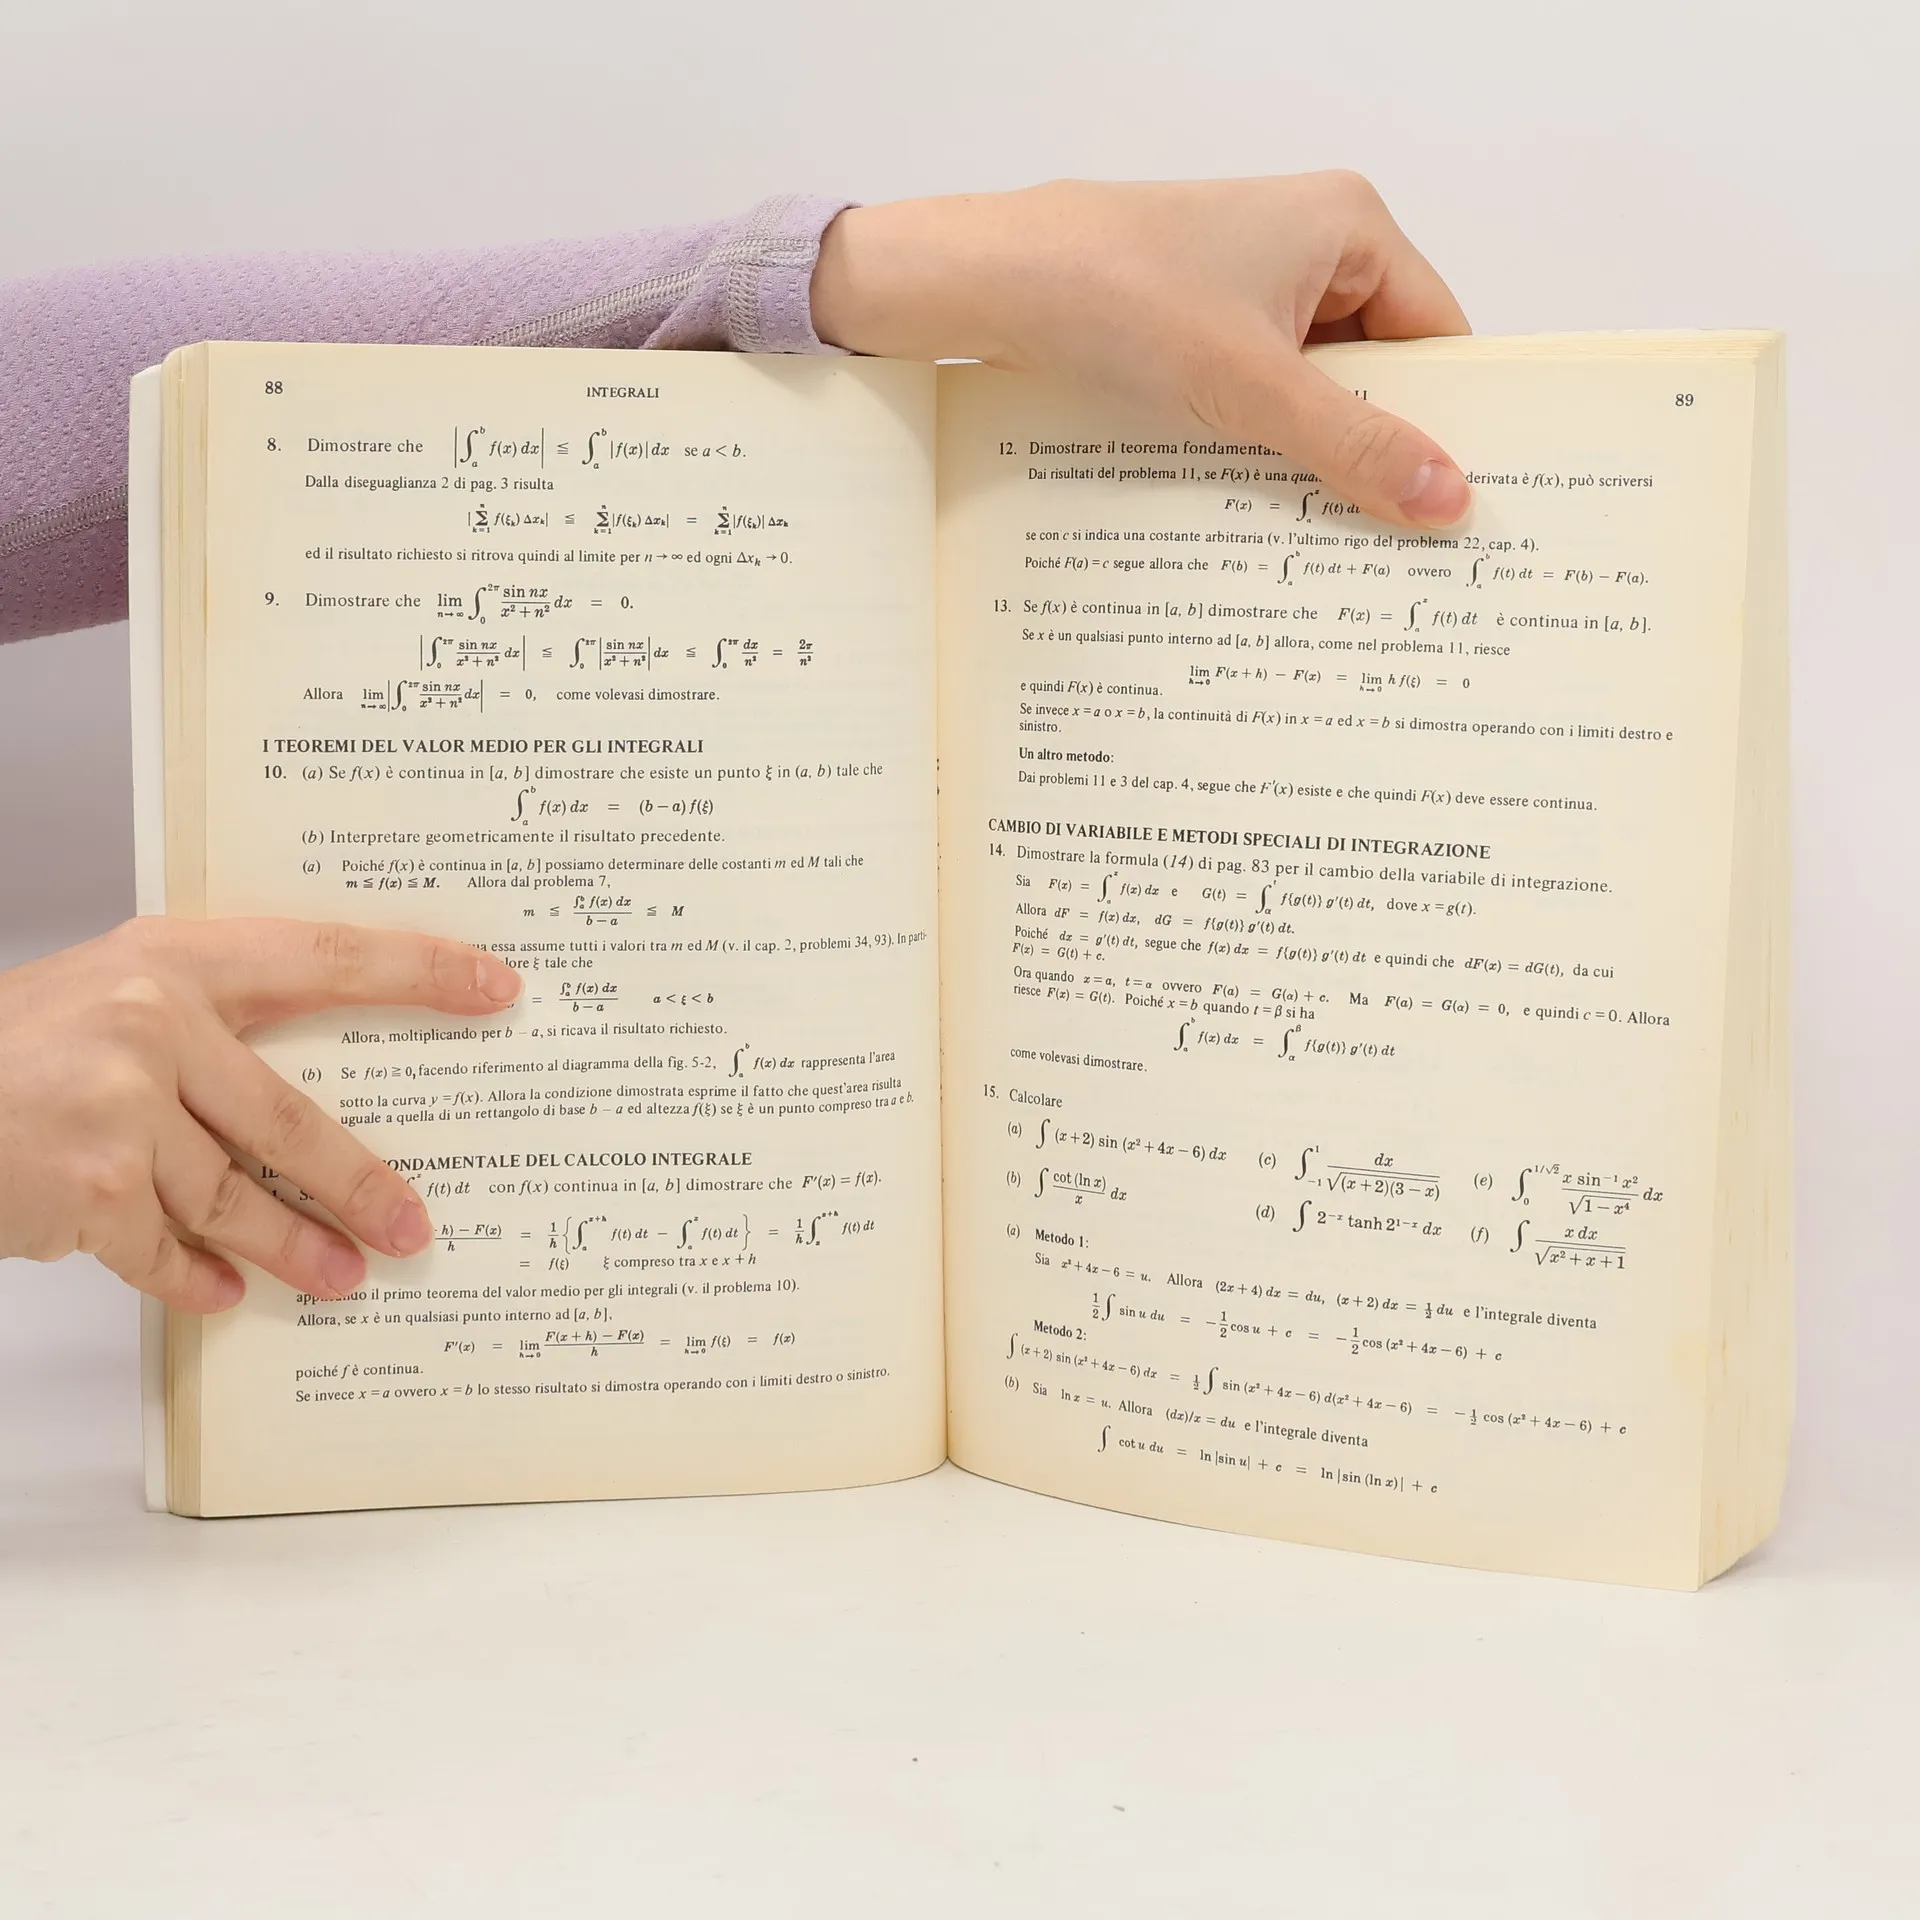 88
INTEGRALI
8. Dimostrare che |∫ₐᵇ f(x) dx| ≦ ∫ₐᵇ |f(x)| dx se a < b.
Dalla diseguaglianza 2 di pag. 3 risulta
|∑ₖ₌₁ⁿ f(ξₖ) Δxₖ| ≦ ∑ₖ₌₁ⁿ |f(ξₖ) Δxₖ| = ∑ₖ₌₁ⁿ |f(ξₖ)| Δxₖ
ed il risultato richiesto si ritrova quindi al limite per n → ∞ ed ogni Δxₖ → 0.
9. Dimostrare che lim n→∞ ∫₀²ᵖⁱ sin nx / (x² + n²) dx = 0.
|∫₀^2π sin nx / (x² + n²) dx| ≦ ∫₀^2π |sin nx / (x² + n²)| dx ≦ ∫₀^2π dx / n² = 2π / n²
Allora lim n→∞ |∫₀^2π sin nx / (x² + n²) dx| = 0, come volevasi dimostrare.
I TEOREMI DEL VALOR MEDIO PER GLI INTEGRALI
10. (a) Se f(x) è continua in [a, b] dimostrare che esiste un punto ξ in (a, b) tale che
∫ₐᵇ f(x) dx = (b − a) f(ξ)
(b) Interpretare geometricamente il risultato precedente.
(a) Poiché f(x) è continua in [a, b] possiamo determinare delle costanti m ed M tali che
m ≦ f(x) ≦ M. Allora dal problema 7,
m ≦ ∫ₐᵇ f(x) dx / (b − a) ≦ M
essa assume tutti i valori tra m ed M (v. il cap. 2, problemi 34, 93). In parti-
ξ tale che
= ∫ₐᵇ f(x) dx / (b − a) a < ξ < b
Allora, moltiplicando per b − a, si ricava il risultato richiesto.
(b) Se f(x) ≧ 0, facendo riferimento al diagramma della fig. 5-2, ∫ₐᵇ f(x) dx rappresenta l'area
sotto la curva y = f(x). Allora la condizione dimostrata esprime il fatto che quest'area risulta
uguale a quella di un rettangolo di base b − a ed altezza f(ξ) se ξ è un punto compreso tra a e b.
IL ONDAMENTALE DEL CALCOLO INTEGRALE
f(t) dt con f(x) continua in [a, b] dimostrare che F'(x) = f(x).
h) − F(x) / h = 1/h {∫ₐ^x+h f(t) dt − ∫ₐ^x f(t) dt} = 1/h ∫ₓ^x+h f(t) dt
= f(ξ) ξ compreso tra x e x + h
il primo teorema del valor medio per gli integrali (v. il problema 10).
Allora, se x è un qualsiasi punto interno ad [a, b],
F'(x) = lim h→0 F(x + h) − F(x) / h = lim h→0 f(ξ) = f(x)
poiché f è continua.
Se invece x = a ovvero x = b lo stesso risultato si dimostra operando con i limiti destro o sinistro.
89
12. Dimostrare il teorema
Dai risultati del problema 11, se F(x) è una derivata è f(x), può scriversi
F(x) = ∫ₐ^x f(t)
se con c si indica una costante arbitraria (v. l'ultimo rigo del problema 22, cap. 4).
Poiché F(a) = c segue allora che F(b) = ∫ₐᵇ f(t) dt + F(a) ovvero ∫ₐᵇ f(t) dt = F(b) − F(a).
13. Se f(x) è continua in [a, b] dimostrare che F(x) = ∫ₐ^x f(t) dt è continua in [a, b].
Se x è un qualsiasi punto interno ad [a, b] allora, come nel problema 11, riesce
lim h→0 F(x + h) − F(x) = lim h→0 h f(ξ) = 0
e quindi F(x) è continua.
Se invece x = a o x = b, la continuità di F(x) in x = a ed x = b si dimostra operando con i limiti destro e
sinistro.
Un altro metodo:
Dai problemi 11 e 3 del cap. 4, segue che F'(x) esiste e che quindi F(x) deve essere continua.
CAMBIO DI VARIABILE E METODI SPECIALI DI INTEGRAZIONE
14. Dimostrare la formula (14) di pag. 83 per il cambio della variabile di integrazione.
Sia F(x) = ∫ₐ^x f(x) dx e G(t) = ∫α^t f{g(t)} g'(t) dt, dove x = g(t).
Allora dF = f(x) dx, dG = f{g(t)} g'(t) dt.
Poiché dx = g'(t) dt, segue che f(x) dx = f{g(t)} g'(t) dt e quindi che dF(x) = dG(t), da cui
F(x) = G(t) + c.
Ora quando x = a, t = α ovvero F(a) = G(α) + c. Ma F(a) = G(α) = 0, e quindi c = 0. Allora
riesce F(x) = G(t). Poiché x = b quando t = β si ha
∫ₐᵇ f(x) dx = ∫α^β f{g(t)} g'(t) dt
come volevasi dimostrare.
15. Calcolare
(a) ∫ (x + 2) sin (x² + 4x − 6) dx (c) ∫₋₁¹ dx / √(x + 2)(3 − x) (e) ∫₀^1/√2 x sin⁻¹ x² / √1 − x⁴ dx
(b) ∫ cot (ln x) / x dx (d) ∫ 2⁻ˣ tanh 2¹⁻ˣ dx (f) ∫ x dx / √x² + x + 1
(a) Metodo 1:
Sia x² + 4x − 6 = u. Allora (2x + 4) dx = du, (x + 2) dx = ½ du e l'integrale diventa
½ ∫ sin u du = −½ cos u + c = −½ cos (x² + 4x − 6) + c
Metodo 2:
∫ (x + 2) sin (x² + 4x − 6) dx = ½ ∫ sin (x² + 4x − 6) d(x² + 4x − 6) = −½ cos (x² + 4x − 6) + c
(b) Sia ln x = u. Allora (dx)/x = du e l'integrale diventa
∫ cot u du = ln |sin u| + c = ln |sin (ln x)| + c